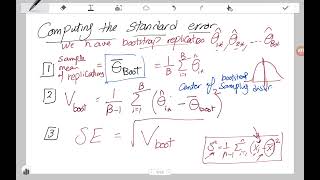 Computing the standard error
We have bootstrap replication θ̂1*, θ̂2*, ... θ̂B*
1 sample mean of replications = θ̄Boot = 1/B Σ i=1 B θ̂i*
center of bootstrap sampling distr
2 Vboot = 1/(B-1) Σ i=1 B (θ̂i* - θ̄boot)²
3 SE = √Vboot
S² = 1/(n-1) Σ i=1 n (xi - x̄)²